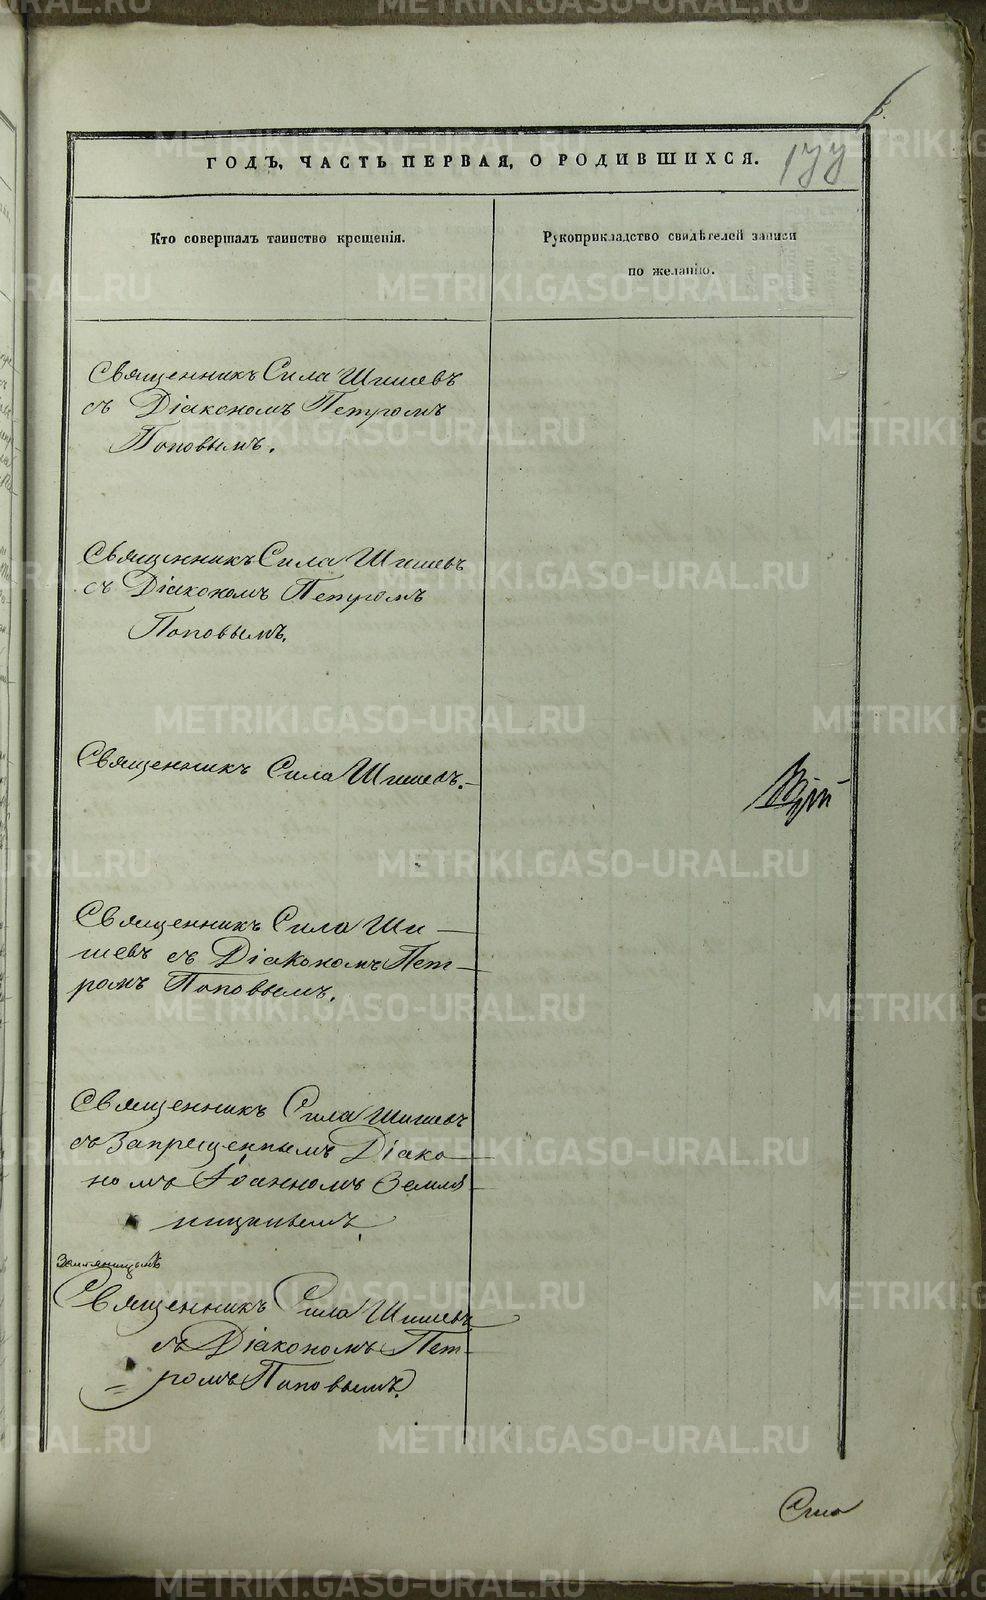 5.
177
ГОДЪ, ЧАСТЬ ПЕРВАЯ, О РОДИВШИХСЯ.
Кто совершалъ таинство крещенія.
Рукоприкладство свидѣтелей записи
по желанію.
Священникъ Сила Шишевъ
съ Діакономъ Петромъ
Поповымъ.
Священникъ Сила Шишевъ
съ Діакономъ Петромъ
Поповымъ.
Священникъ Сила Шишевъ.
Священникъ Сила Ши-
шевъ съ Діакономъ Пет-
ромъ Поповымъ.
Священникъ Сила Шишевъ
съ Запрещеннымъ Діако-
номъ Іоанномъ Земля-
ницынымъ
Земляницымъ
Священникъ Сила Шишевъ
съ Діакономъ Пет-
ромъ Поповымъ.
METRIKI.GASO-URAL.RU